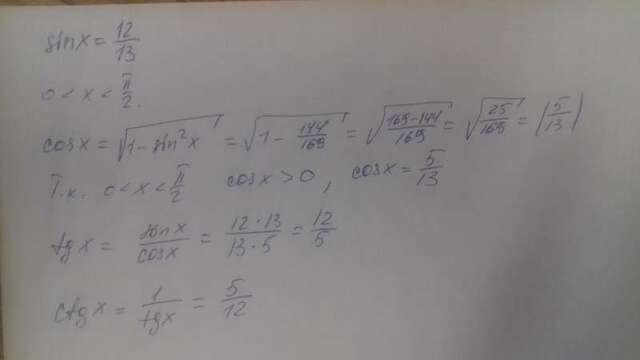 sin x = 12/13
0 < x < π/2.
cos x = √(1 - sin²x) = √(1 - 144/169) = √((169-144)/169) = √(25/169) = |5/13|
Т.к. 0 < x < π/2 cos x > 0, cos x = 5/13
tg x = sin x/cos x = (12 · 13)/(13 · 5) = 12/5
ctg x = 1/tg x = 5/12